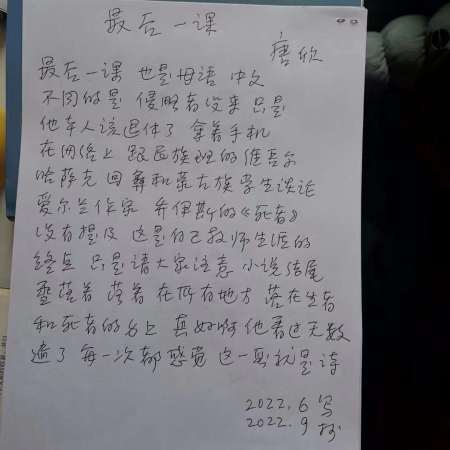 最后一课
唐欣
最后一课 也是母语 中文
不同的是 侵略者没来 只是
他本人该退休了 拿着手机
在网络上 跟民族班的维吾尔
哈萨克 回彝和蒙古族学生谈论
爱尔兰作家 乔伊斯的《死者》
没有提及 这是自己教师生涯的
终点 只是请大家注意 小说结尾
雪落着 落着 在所有地方 落在生者
和死者的身上 真好啊 他看过无数
遍了 每一次都感觉 这一页就是诗
2022.6写
2022.9抄